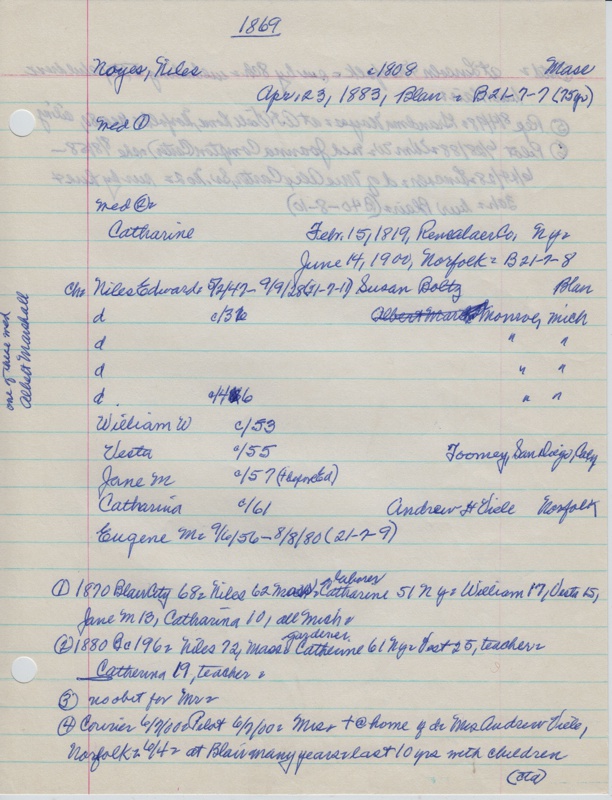 1869
Noyes, Niles c1808 Mass
Apr. 23, 1883, Blair = B21-7-7 (75yr)
med ①
med ②=
Catharine Febr. 15, 1819, Renselaer Co, Ny=
June 14, 1900, Norfolk = B21-7-8
ch= Niles Edward= 5/2/47-9/9/28(31-7-17) Susan Boltz Blair
d c/36 Monroe, mich
d " "
d " "
d c/46 " "
one of above med
Albert Marshall
William W c/53
Vesta c/55 Toomey, San Diego, Caty
Jane M c/57
Catharina c/61 Andrew H Viele Norfolk
Eugene M= 9/6/56-8/8/80 (21-7-9)
① 1870 Blair City 68= Niles 62 Mass, laborer = Catharine 51 Ny= William 17, Vesta 15,
Jane M 13, Catharina 10, all Mich=
② 1880 Bc 196= Niles 72, Mass gardener = Catherine 61 Ny= Vest 25, teacher=
Catherina 19, teacher =
③ no obit for Mr=
④ Courier 6/7/00= Pilot 6/7/00= Mrs + @ home of d= Mrs Andrew Viele,
Norfolk= 6/4= at Blair many years= last 10 yrs with children
(ota)